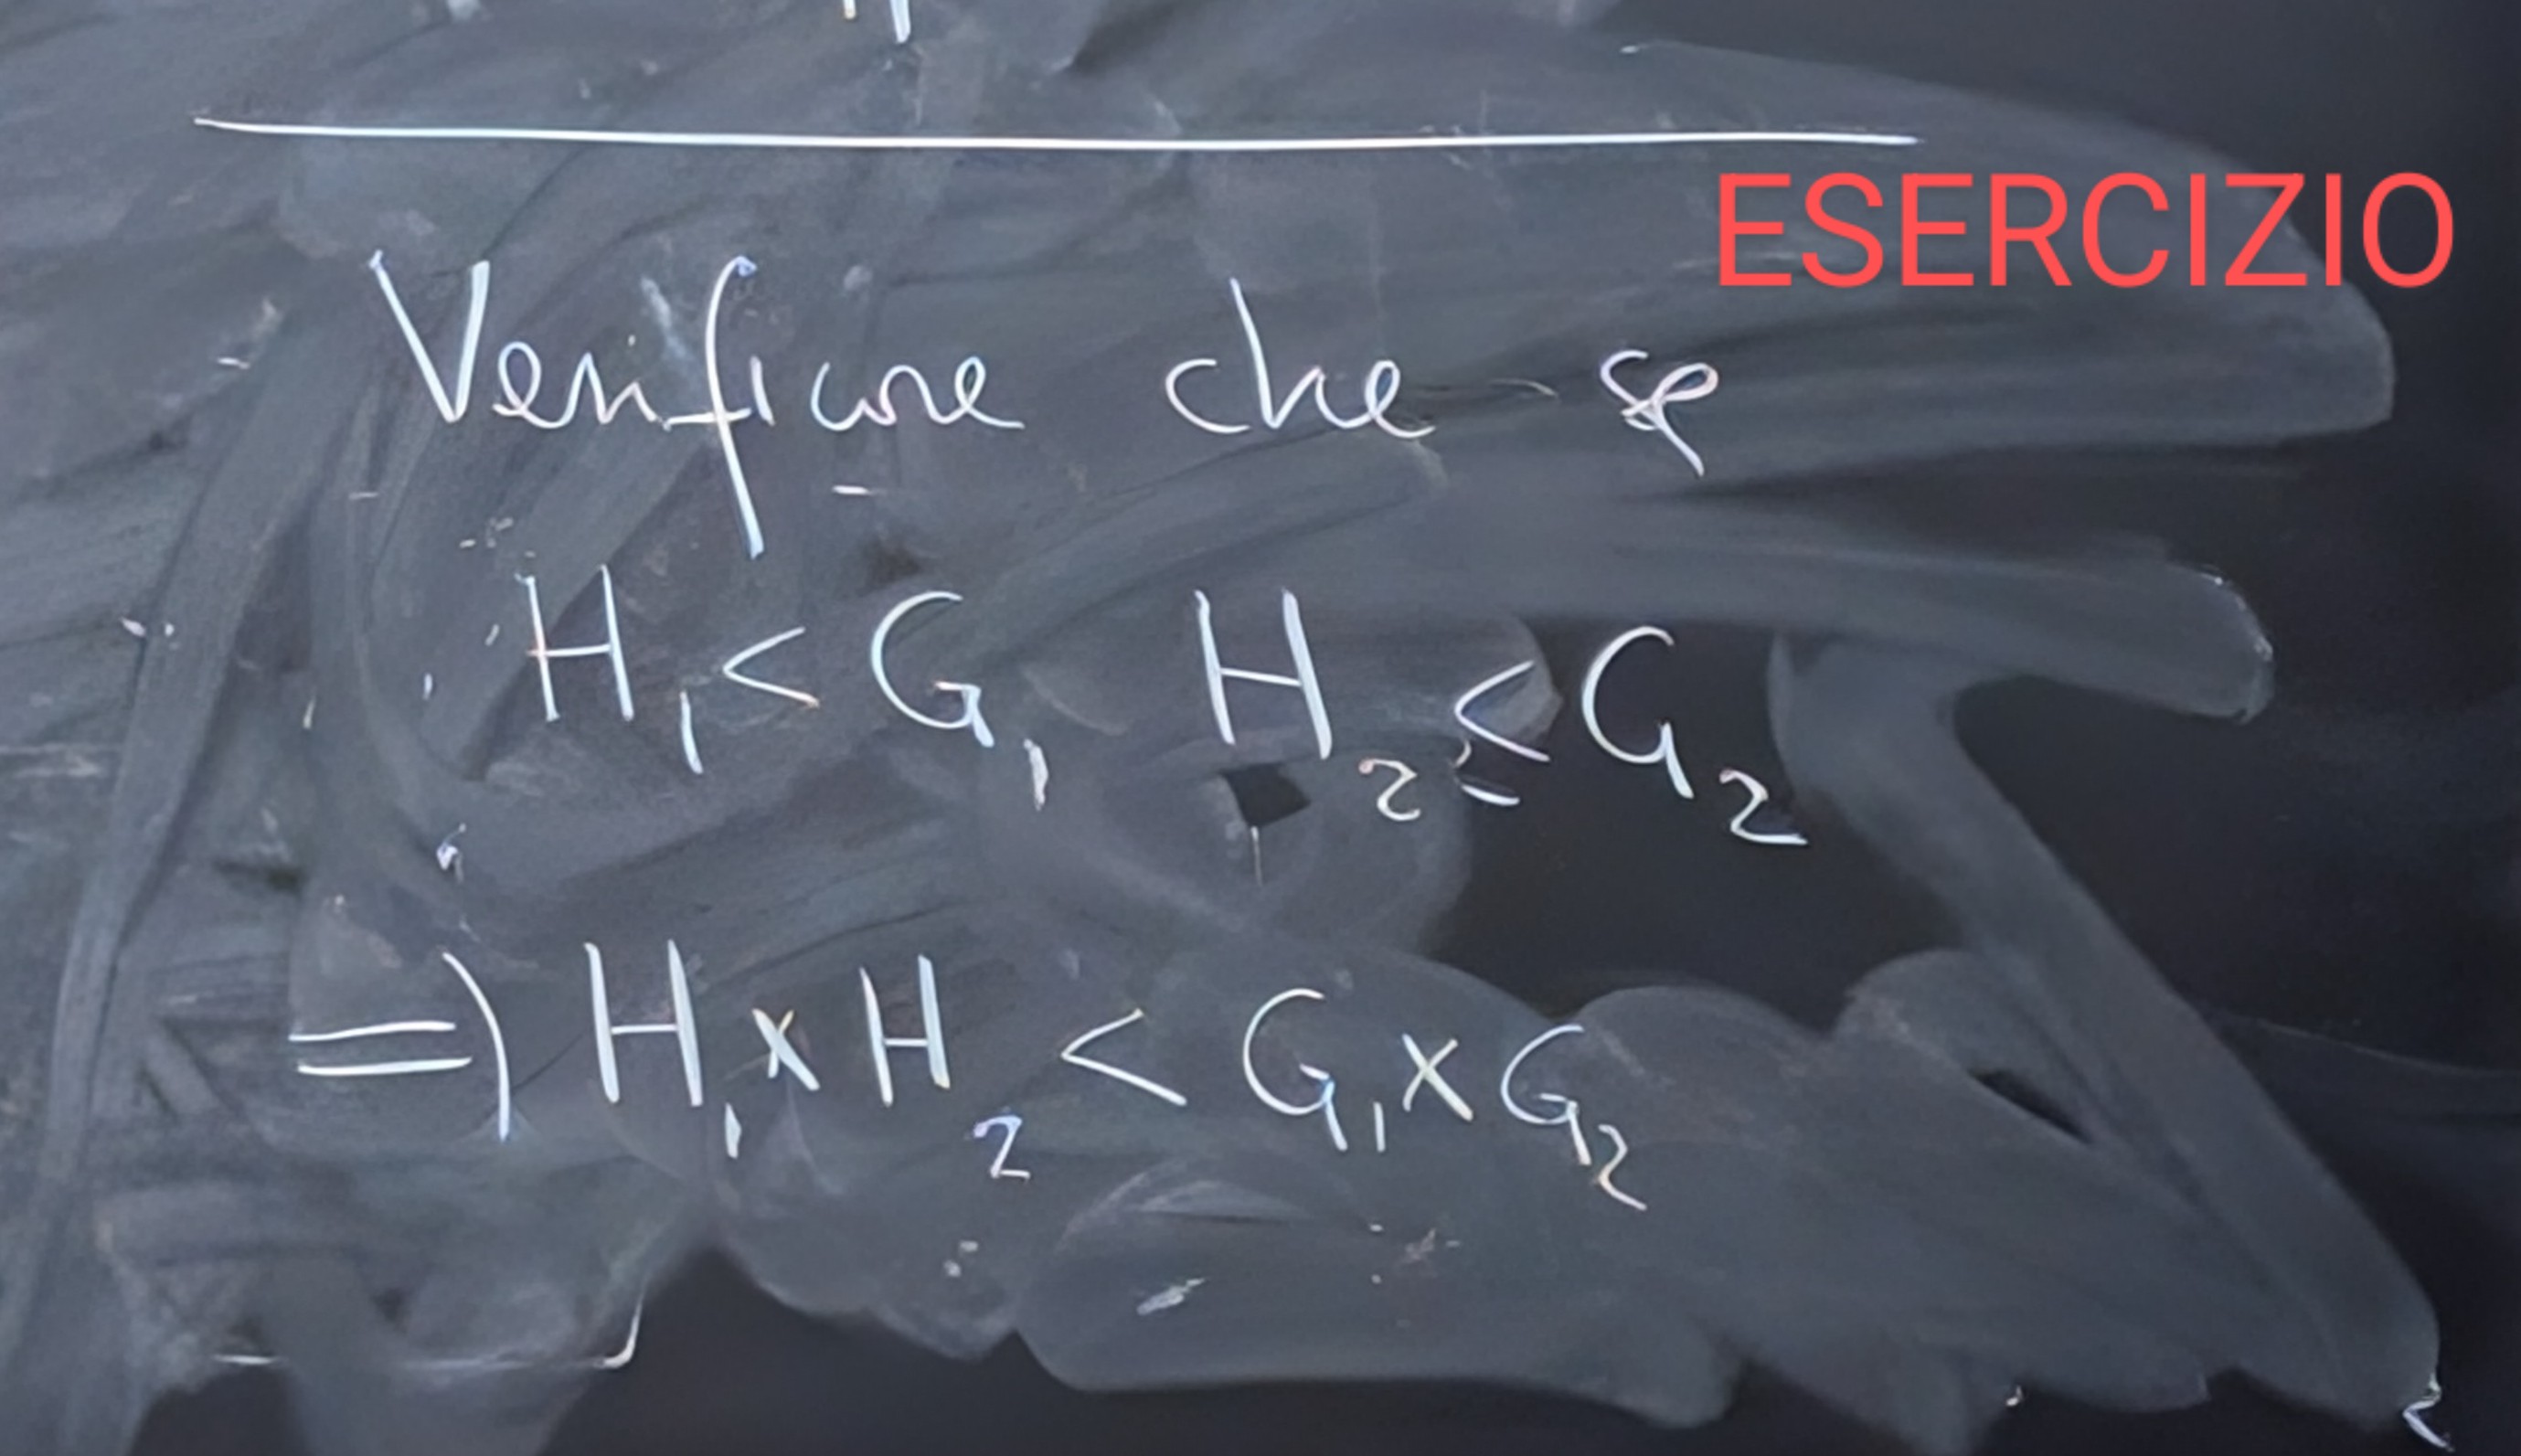 ESERCIZIO
Verificare che se
H₁ < G₁ H₂ ≤ G₂
⇒ H₁ × H₂ < G₁ × G₂